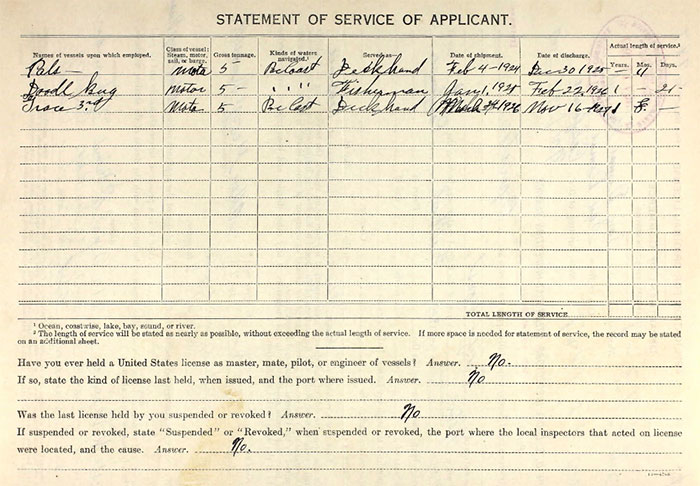 STATEMENT OF SERVICE OF APPLICANT.
Names of vessels upon which employed. Class of vessel: Steam, motor, sail, or barge. Gross tonnage. Kinds of waters navigated.¹ Served as— Date of shipment. Date of discharge. Actual length of service.²
Years. Mos. Days.
Pals — Moto 5 - Deckhand Feb 4 - 1924 Dec 30 1925 - 11
Doodl bug motor 5 - " " " " Fisherman Jany 1, 1925 Feb 22, 1926 1 - 21
Grace 3rd Moto 5 Deckhand 1926 Nov 16 8
TOTAL LENGTH OF SERVICE
¹ Ocean, coastwise, lake, bay, sound, or river.
² The length of service will be stated as nearly as possible, without exceeding the actual length of service. If more space is needed for statement of service, the record may be stated
on an additional sheet.
Have you ever held a United States license as master, mate, pilot, or engineer of vessels? Answer. No.
If so, state the kind of license last held, when issued, and the port where issued. Answer. No
Was the last license held by you suspended or revoked? Answer. No
If suspended or revoked, state "Suspended" or "Revoked," when suspended or revoked, the port where the local inspectors that acted on license
were located, and the cause. Answer. No.